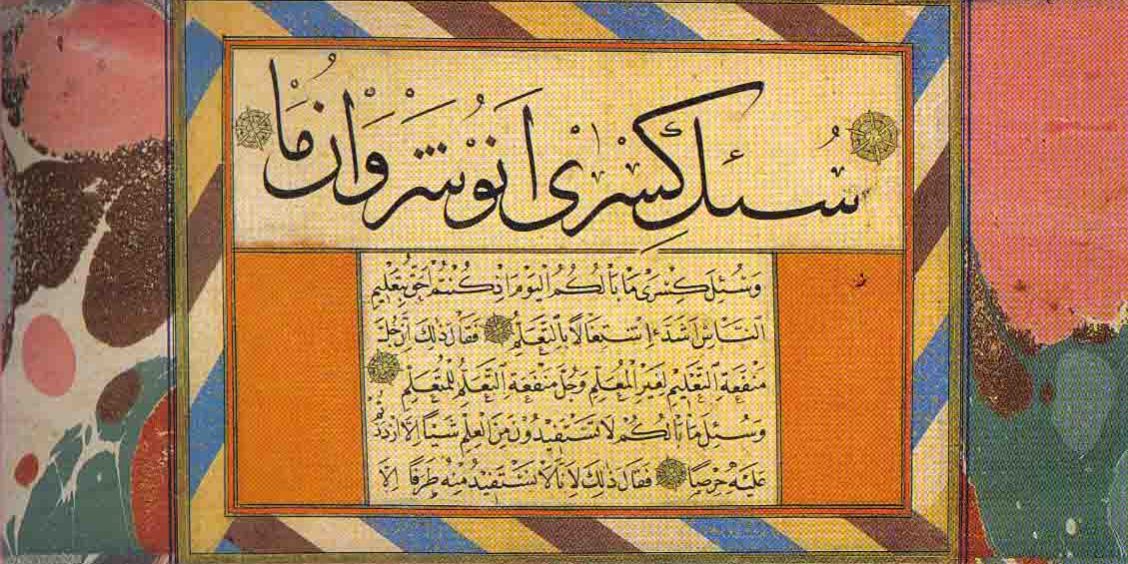 سُئِلَ كِسْرٰى اَنُوشَرْوَانُ مَا
وَسُئِلَ كِسْرٰى مَا بَالُكُمُ الْيَوْمَ اِذْ كُنْتُمْ اَحَقَّ بِتَعْلِيمِ
النَّاسِ اَشَدَّ اِسْتِغَالًا بِالتَّعَلُّمِ فَقَالَ ذٰلِكَ اَنَّ جُلَّ
مَنْفَعَةِ التَّعْلِيمِ لِغَيْرِ الْمُعَلِّمِ وَجُلَّ مَنْفَعَةِ التَّعَلُّمِ لِلْمُتَعَلِّمِ
وَسُئِلَ مَا بَالُكُمْ لَا تَسْتَفِيدُونَ مِنَ الْعِلْمِ شَيْئًا اِلَّا ازْدَدْتُمْ
عَلَيْهِ حِرْصًا فَقَالَ ذٰلِكَ لِاَنَّا لَا نَسْتَفِيدُ مِنْهُ طَرَفًا اِلَّا